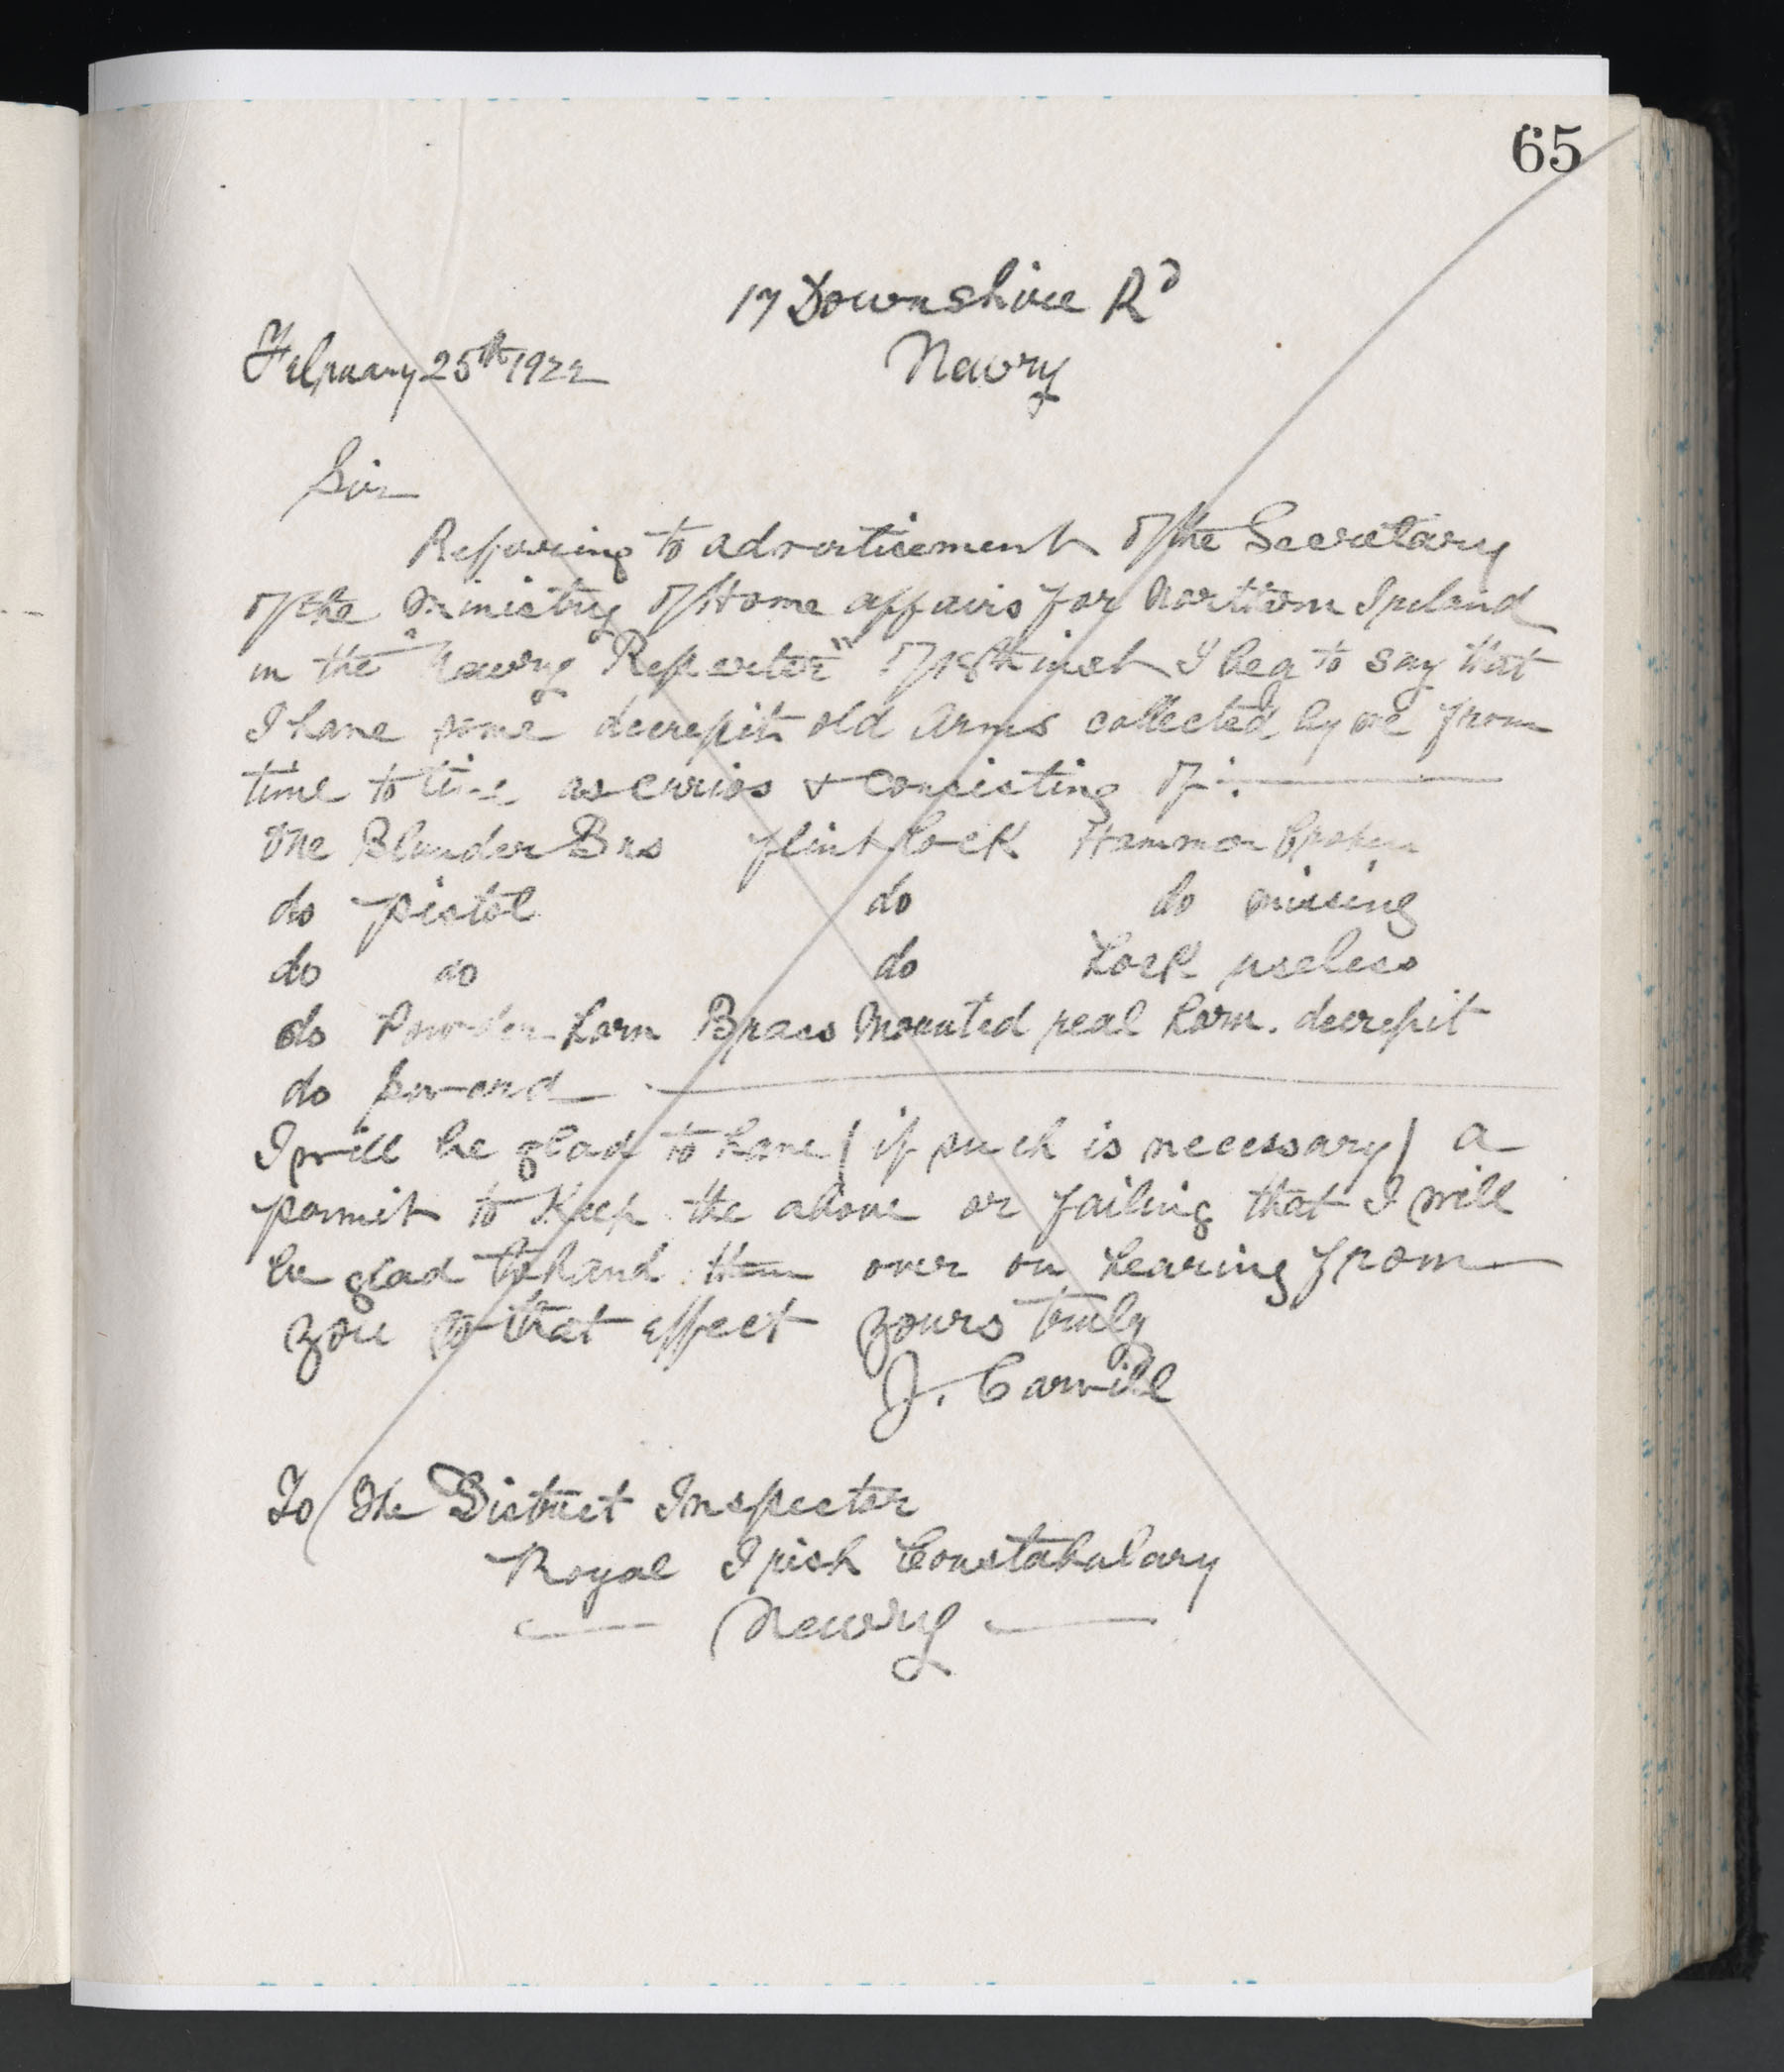 65
17 Downshire Rd
February 25th 1922
Newry
Sir
Refering to advertisement of the Secretary
of the Ministry of Home affairs for Northern Ireland
in the "Newry Reporter" of 18th inst I beg to say that
I have some decrepit old arms collected by me from
time to time as curios & consisting of :
One Blunder Bus flint lock Hammer broken
do pistol do do missing
do do do Lock useless
do Powder horn Brass Mounted real horn. decrepit
do Sword
I will be glad to have ( if such is necessary ) a
permit to Keep the above or failing that I will
be glad to hand them over on hearing from
you to that effect yours truly
J. Carvill
To The District Inspector
Royal Irish Constabulary
Newry